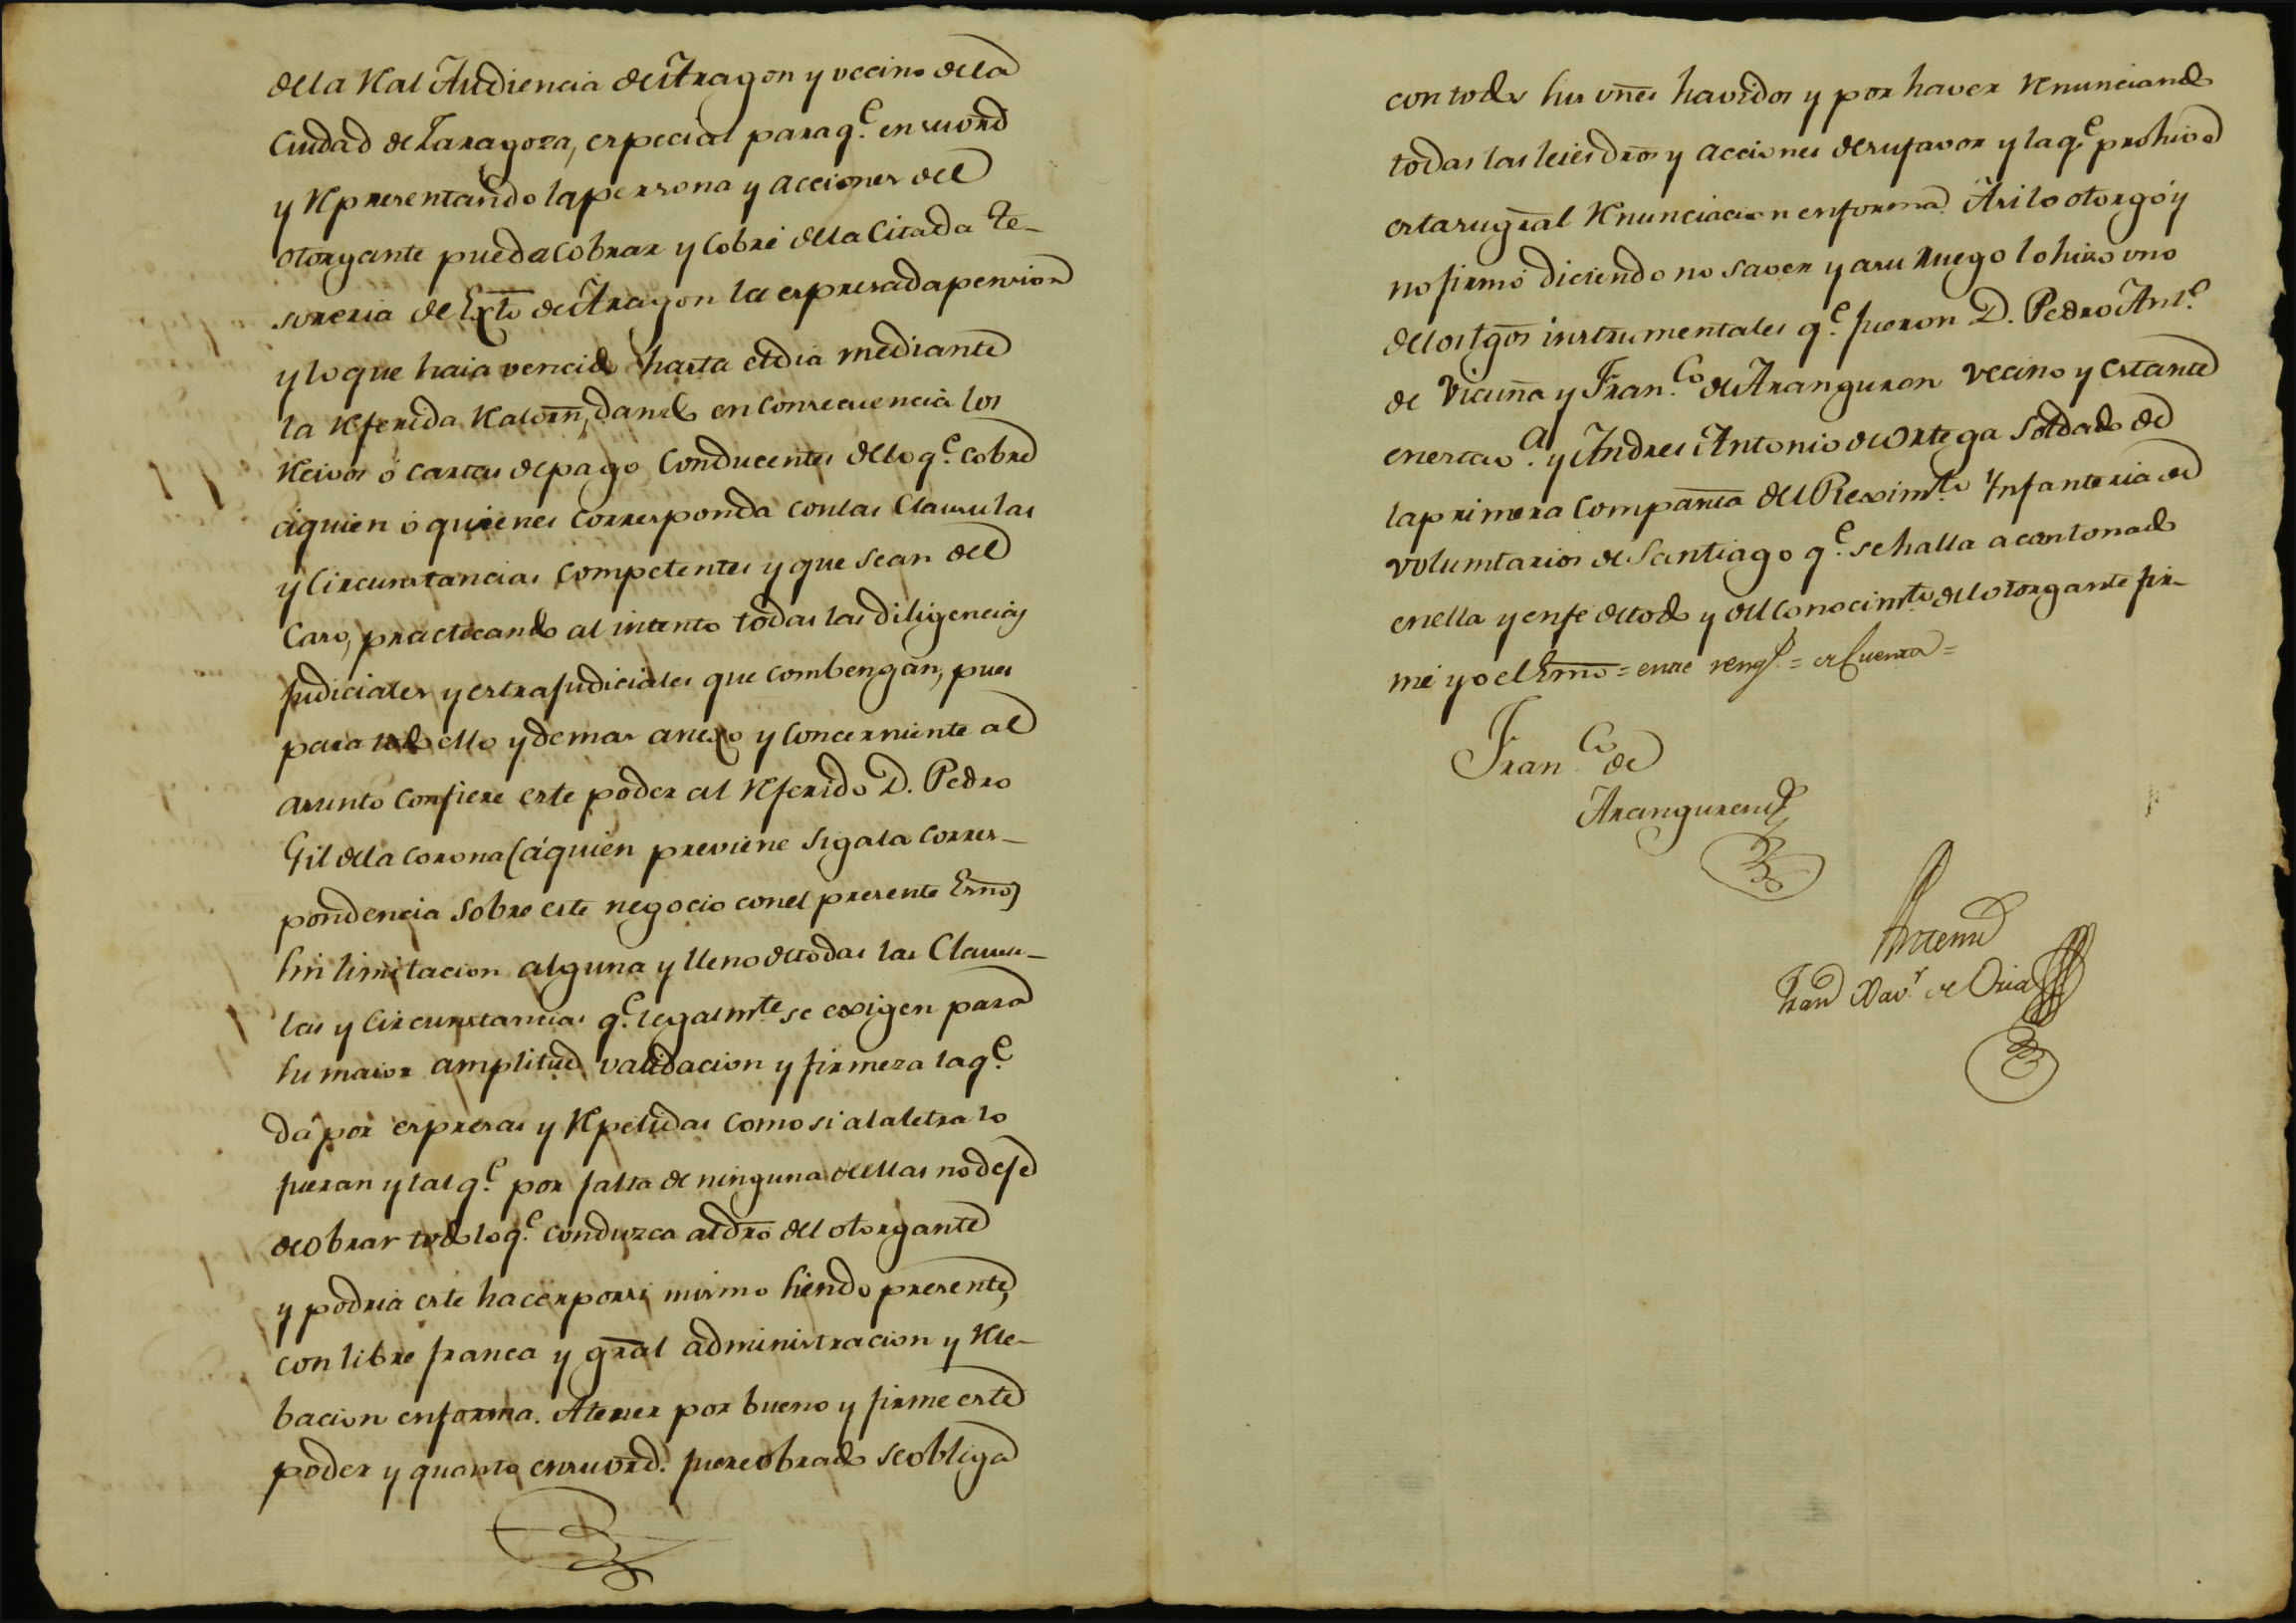 de la Real Audiencia de Aragon y vecino de la
Ciudad de Zaragoza, especial para q.e en su vord
y Representando la persona y acciones del
otorgante pueda cobrar y cobre de la citada Te-
soreria de Exto de Aragon la espresada pension
y lo que haia vencido hasta el dia mediante
la Referida Real orn, dando en consecuencia los
Recivos ó cartas de pago conducentes de lo q.e cobre
á quien ó quienes corresponda con las clausulas
y circunstancias competentes y que sean del
caso, practicando al intento todas las diligencias
Judiciales y estrajudiciales que combengan, pues
para todo ello y demas anexo y concerniente al
asunto confiere este poder al Referido D. Pedro
Gil de la Corona (á quien previene siga la corres-
pondencia sobre este negocio con el presente Esno)
sin limitacion alguna y lleno de todas las Clausu-
las y circunstancias q.e legalm.te se exigen para
su maior amplitud validacion y firmeza la q.e
dá por espresas y Repetidas como si a la letra lo
fueran y tal q.e por falta de ninguna de ellas no deje
de obrar todo lo q.e conduzca al dro del otorgante
y podria este hacer por si mismo siendo presente,
con libre franca y gral administracion y Rele-
bacion en forma. A tener por bueno y firme este
poder y quanto en su vord. fuere obrado se obliga
con todos sus vnes havidos y por haver Renunciando
todas las leies dros y acciones de su favor y la q.e prohive
esta su gral Renunciacion en forma. Asi lo otorgó y
no firmó diciendo no saver y a su Ruego lo hizo uno
de los tgos instrumentales q.e fueron D. Pedro Ant.o
de Vicuña y Fran.co de Aranguren vecino y estante
en esta v.a y Andres Antonio de Ortega soldado de
la primera Compañia del Reximt.o Ynfanteria de
voluntarios de Santiago q.e se halla acantonado
en ella y en fe de todo y del conocimt.o del otorgante fir-
mé yo el Esno = entre rengs. = de cuenta =
Fran.co de
Aranguren
Antemi
Fran Xav.r de Oria